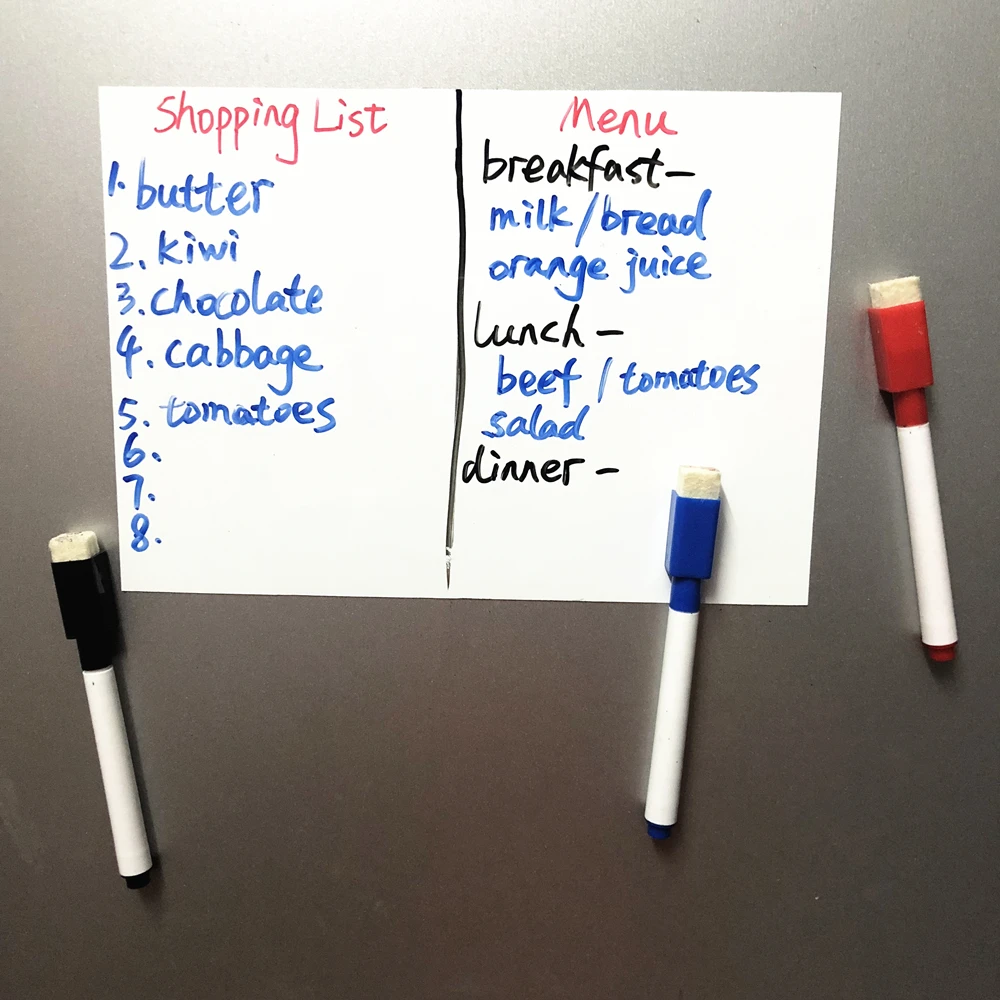 Shopping List
1. butter
2. kiwi
3. chocolate
4. cabbage
5. tomatoes
6.
7.
8.
Menu
breakfast-
milk/bread
orange juice
lunch-
beef / tomatoes
salad
dinner-